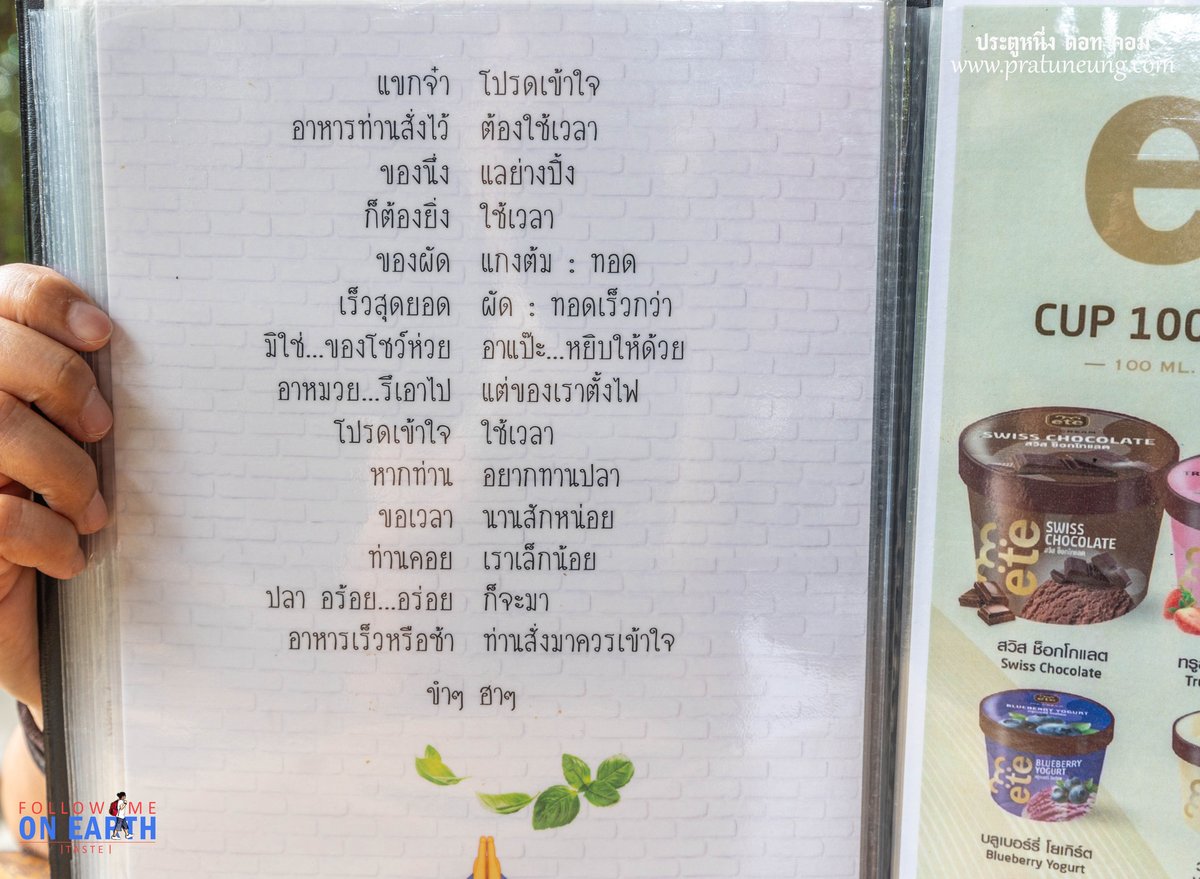 แขกจ๋า โปรดเข้าใจ
อาหารท่านสั่งไว้ ต้องใช้เวลา
ของนึ่ง แลย่างปิ้ง
ก็ต้องยิ่ง ใช้เวลา
ของผัด แกงต้ม : ทอด
เร็วสุดยอด ผัด : ทอดเร็วกว่า
มิใช่...ของโชว์ห่วย อาแป๊ะ...หยิบให้ด้วย
อาหมวย...รึเอาไป แต่ของเราตั้งไฟ
โปรดเข้าใจ ใช้เวลา
หากท่าน อยากทานปลา
ขอเวลา นานสักหน่อย
ท่านคอย เราเล็กน้อย
ปลา อร้อย...อร่อย ก็จะมา
อาหารเร็วหรือช้า ท่านสั่งมาควรเข้าใจ
ขำๆ ฮาๆ
FOLLOW ME
ON EARTH
|TASTE|
ประตูหนึ่ง ดอท คอม
www.pratuneung.com
e
CUP 100
100 ML.
ete
ICE CREAM
SWISS CHOCOLATE
สวิส ช็อกโกแลต
ete
SWISS
CHOCOLATE
สวิส ช็อกโกแลต
สวิส ช็อกโกแลต
Swiss Chocolate
BLUEBERRY YOGURT
ete
BLUEBERRY
YOGURT
บลูเบอร์รี่ โยเกิร์ต
Blueberry Yogurt